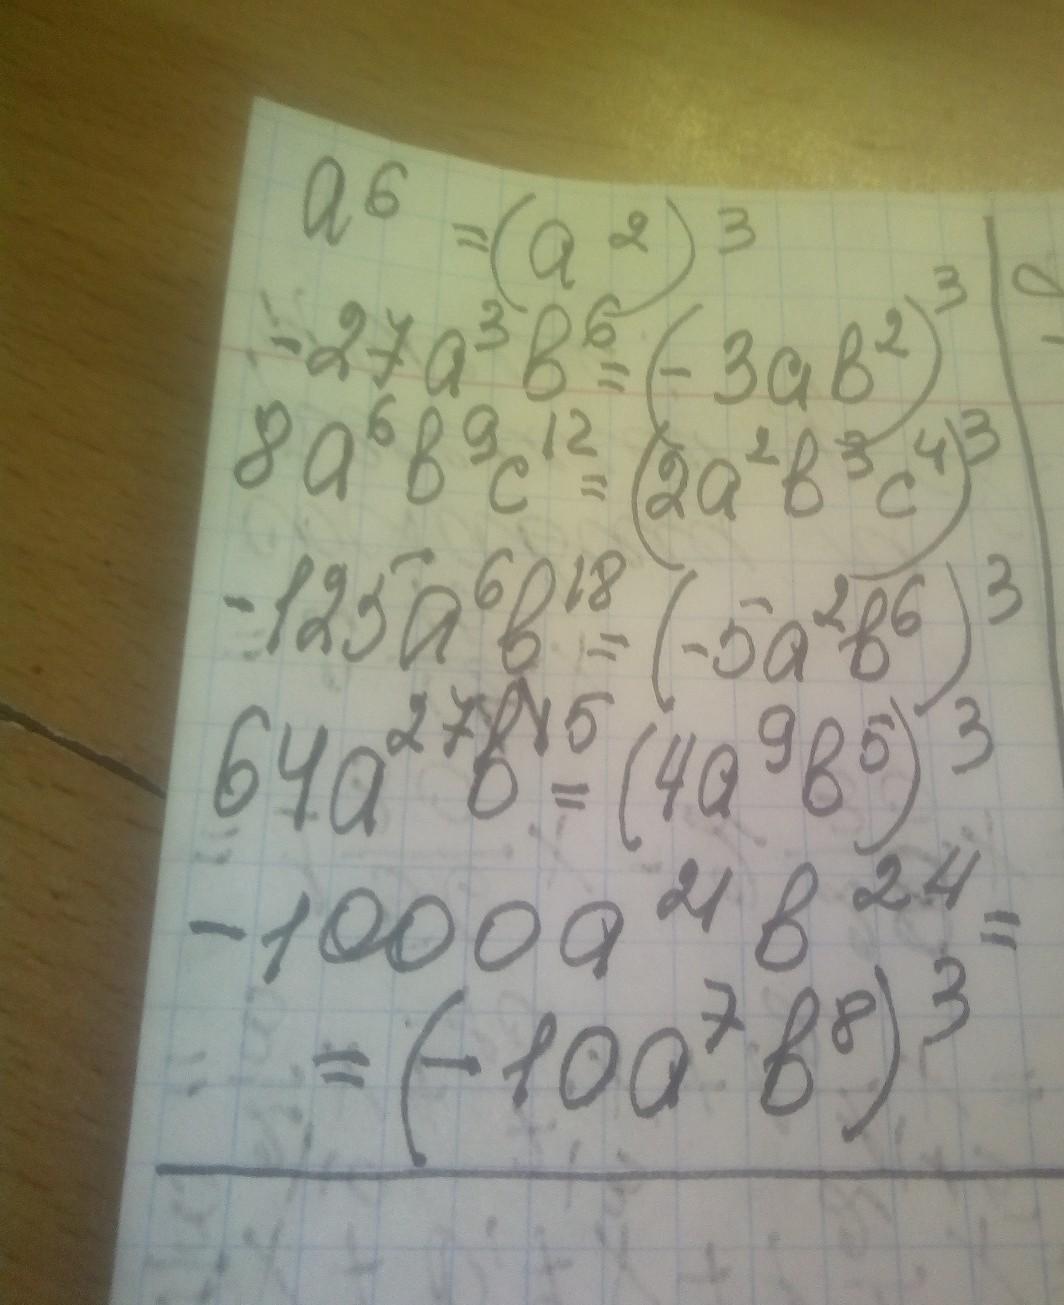 a⁶ = (a²)³
-27a³b⁶ = (-3ab²)³
8a⁶b⁹c¹² = (2a²b³c⁴)³
-125a⁶b¹⁸ = (-5a²b⁶)³
64a²⁷b¹⁵ = (4a⁹b⁵)³
-1000a²¹b²⁴ =
= (-10a⁷b⁸)³